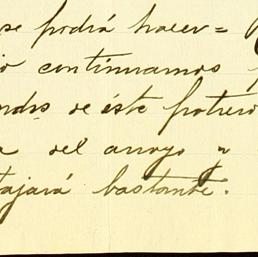 se podrá hacer=
continuamos
de éste potrero
del arroyo y
tajará bastante.